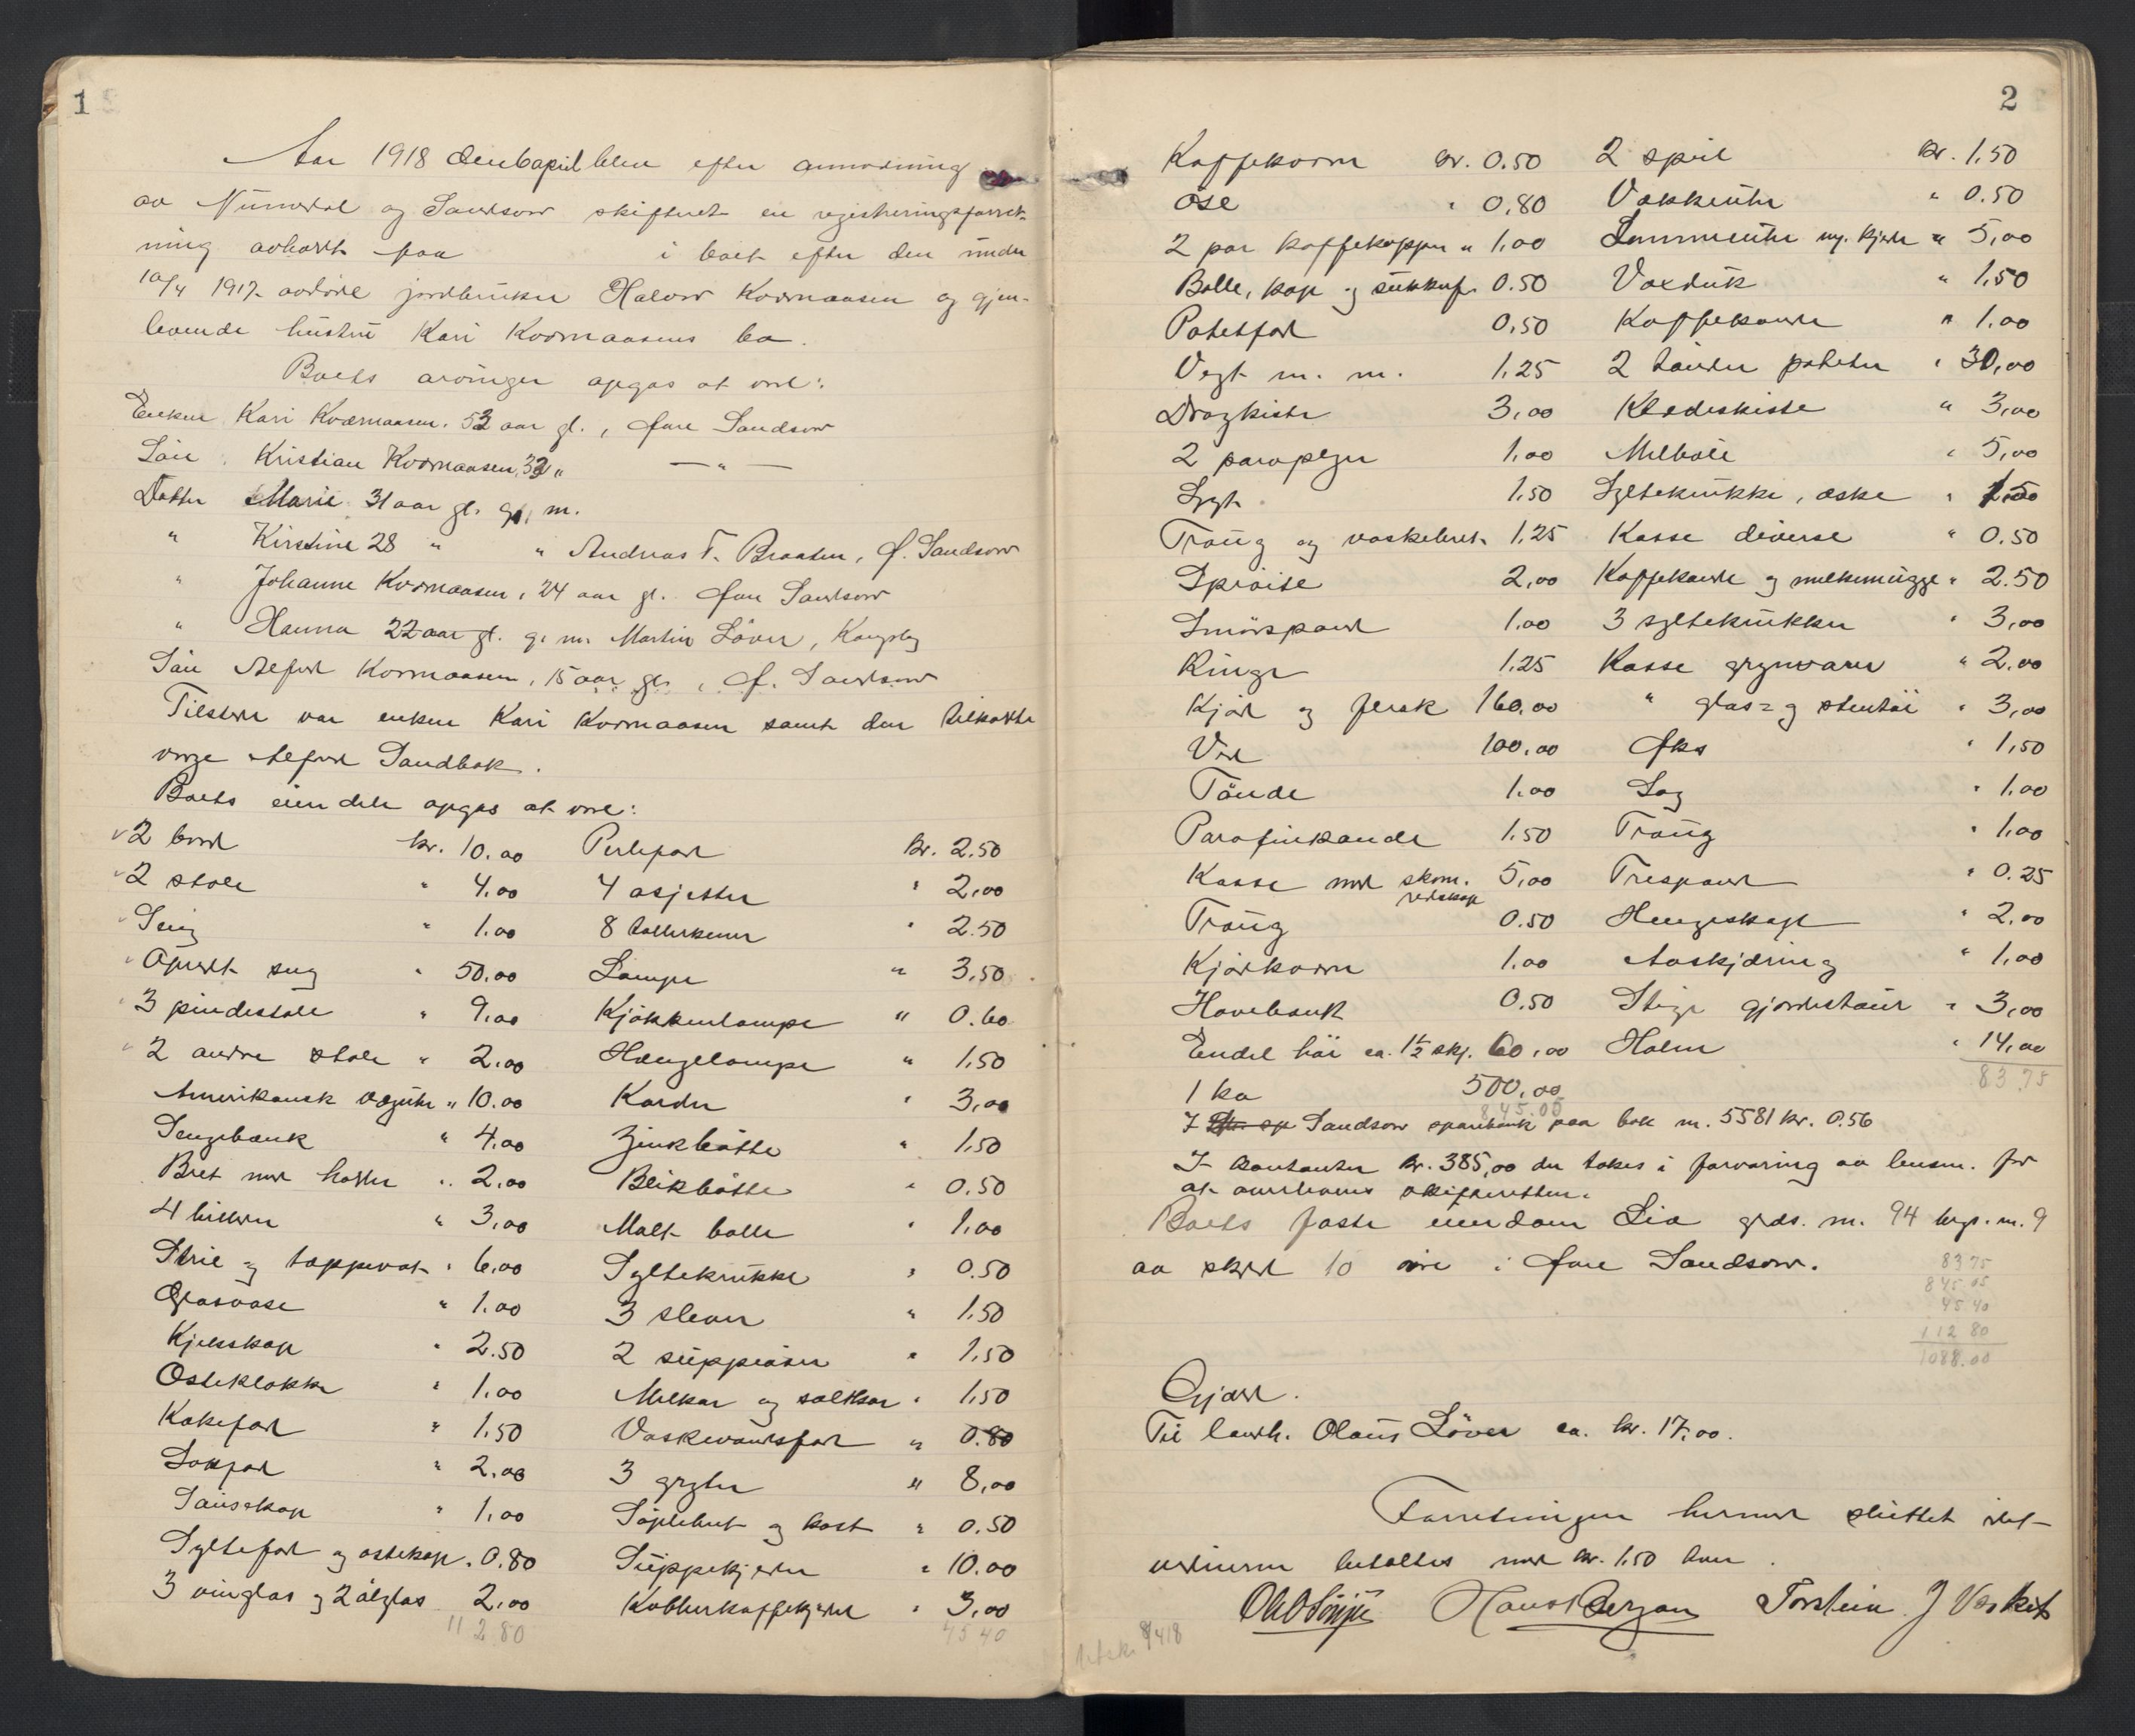 1
Aar 1918 den 6 april blev efter anmodning
av Numedal og Sandsvær skifteret en registreringsforret-
ning avholdt paa i boet efter den under
10/4 1917 avdöde jordbruker Halvor Kormaasen og gjen-
levende hustru Kari Kormaasens bo.
Boets arvinger opgas at være:
Enken Kari Kormaasen. 53 aar gl., Øvre Sandsvær
Sön Kristian Kormaasen, 32 " — " —
Datter Marie 31 aar gl. g. m.
" Kirstine 28 " " Andreas T. Braaten, Ø. Sandsvær
" Johanne Kormaasen, 24 aar gl. Øvre Sandsvær
" Hanna 22 aar gl. g. m. Martin Löver, Kongsberg
Sön Alfred Kormaasen, 15 aar gl., Ø. Sandsvær
Tilstede var enken Kari Kormaasen samt den tilkaldte
verge Alfred Sandbæk.
Boets eiendele opgas at være:
2 bord kr. 10.00 Perlefad kr. 2.50
2 stole " 4.00 4 asjetter " 2,00
Seng " 1.00 8 tallerkener " 2.50
Opredt seng " 50.00 Lampe " 3.50
3 pindestole " 9.00 Kjökkenlampe " 0.60
2 andre stole " 2.00 Hængelampe " 1.50
Amerikansk væguhr " 10.00 Karder " 3,00
Sengebænk " 4.00 Zinkbötte " 1.50
Bret med kopper " 2.00 Blikbötte " 0.50
4 billeder " 3,00 Malt balle " 1.00
Strie og tappevat " 6,00 Syltekrukke " 0.50
Glasvase " 1.00 3 slever " 1.50
Kjelsskap " 2.50 2 suppeöser " 1.50
Osteklokke " 1.00 Melkar og saltkar " 1.50
Kakefad " 1.50 Vaskevandsfad " 0.80
" 2.00 3 gryter " 8,00
Sausekop " 1,00 Söplebret og kost " 0.50
Syltefad og ostekop " 0.80 Suppekjedel " 10.00
3 vinglas og 2 ölglas 2,00 Kobberkaffekjedel " 3,00
112.80 45 40
2
Kaffekværn kr. 0.50 2 speil kr. 1,50
Öse " 0,80 Vækkeuhr " 0.50
2 par kaffekopper " 1,00 Lommeuhr m. kjede " 5,00
Bolle, kop og sukkerf. 0.50 Voxduk " 1,50
Potetfad 0,50 Kaffekande " 1.00
Vegt m. m. 1.25 2 tönder poteter " 30,00
Dragkiste 3,00 Klædeskiste " 3,00
2 paraplyer 1.00 Melböle " 5,00
Lygt 1.50 Syltekrukke, æske " 1.50
Traug og vaskebret 1,25 Kasse diverse " 0.50
Spröite 2,00 Kaffekande og melkemugge " 2.50
Smörspand 1.00 3 syltekrukker " 3,00
Ringe 1.25 Kasse grynvarer " 2.00
Kjöd og flesk 160,00 " glas= og stentöi " 3,00
Ved 100.00 Øks " 1,50
Tönde 1.00 Sag " 1.00
Parafinkande 1.50 Traug " 1,00
Kasse med skom. redskap 5,00 Trespand " 0.25
Traug 0.50 Hengeskap " 2.00
Kjödkværn 1.00 Aaskjæring " 1,00
Hövebænk 0.50 Stige gjærdestaur " 3,00
Endel höi ca. 1½ skj. 60,00 Halm " 14,00
1 ku 500,00 83 75
845.05
I Sandsvær sparebank paa bok nr. 5581 kr. 0.56
I kontanter kr. 385,00 der tokes i forvaring av lensm. for
at oversendes skifteretten.
Boets faste eiendom Lia grds. nr. 94 brgs. nr. 9
av skyld 10 øre i Øvre Sandsvær.
83 75
845.05
45 40
112 80
1088.00
Gjæld.
Til landh. Olaus Löver ca. kr. 17.00.
Forretningen hermed sluttet idet
vidnerne betaltes med kr. 1.50 hver.
Hans Bergan Torstein J
8/4 18